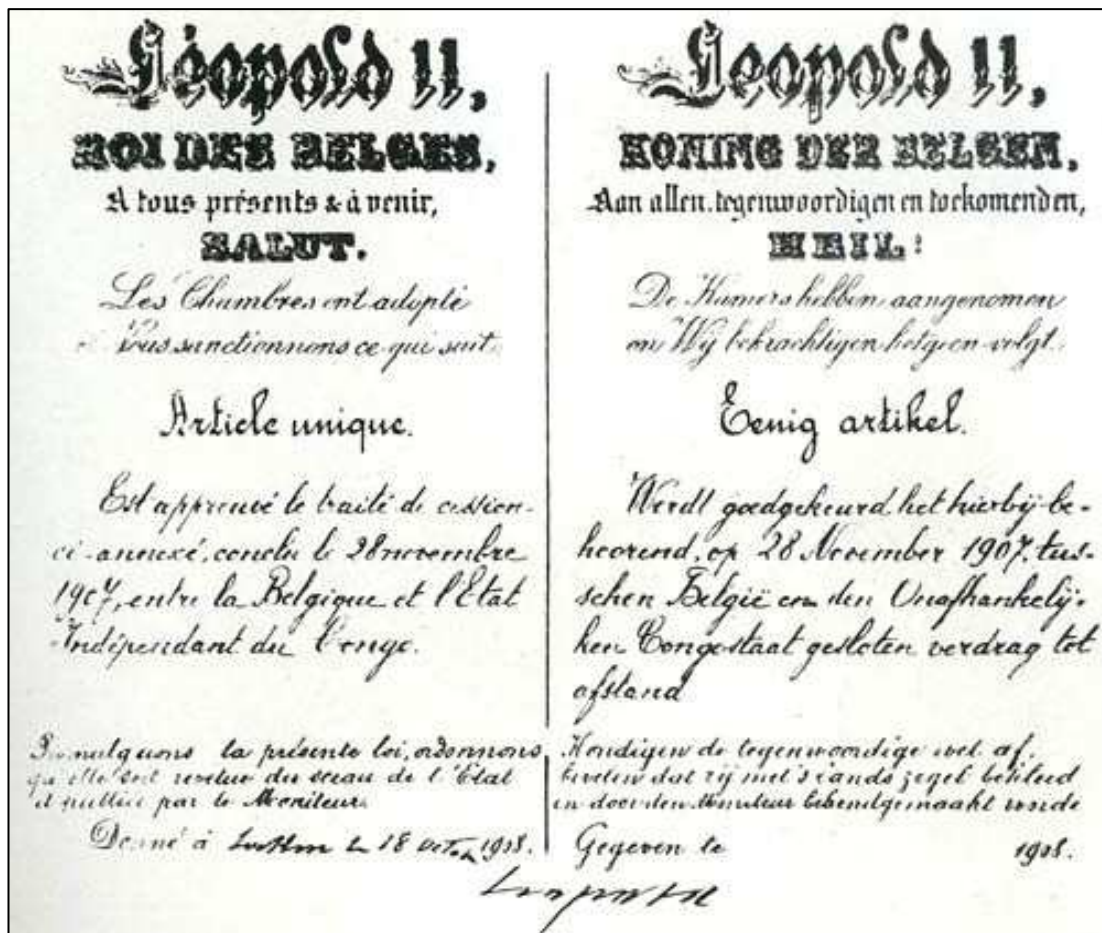 Léopold II,
ROI DES BELGES,
A tous présents & à venir,
SALUT.
Les Chambres ont adopté
et Nous sanctionnons ce qui suit:
Article unique.
Est approuvé le traité de cession
ci-annexé, conclu le 28 novembre
1907, entre la Belgique et l'Etat
Indépendant du Congo.
Promulguons la présente loi, ordonnons
qu'elle soit revêtue du sceau de l'Etat
et publiée par le Moniteur.
Donné à le 18 octob 1908.
Leopold II,
KONING DER BELGEN,
Aan allen, tegenwoordigen en toekomenden,
HEIL:
De Kamers hebben aangenomen
en Wij bekrachtigen hetgeen volgt:
Eenig artikel.
Wordt goedgekeurd het hierbij be-
hoorend, op 28 November 1907, tus-
schen België en den Onafhankelij-
ken Congostaat gesloten verdrag tot
afstand
Kondigen de tegenwoordige wet af,
bevelen dat zij met 's Lands zegel bekleed
en door den Moniteur bekendgemaakt worde
Gegeven te 1908.
Leopold